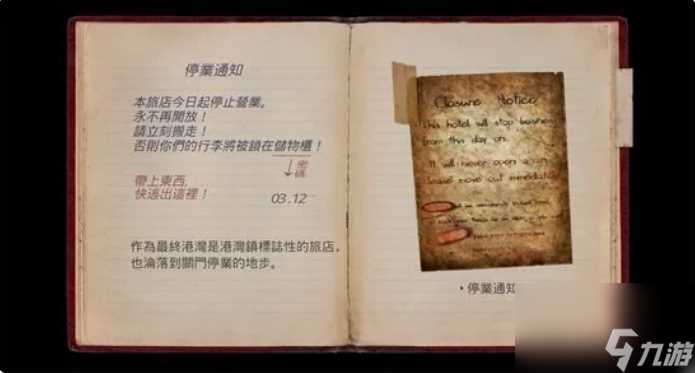 停業通知
本旅店今日起停止營業。
永不再開放！
請立刻搬走！
否則你們的行李將被鎖在儲物櫃！
密碼
03.12
帶上東西，
快逃出這裡！
作為最終港灣是港灣鎮標誌性的旅店，
也淪落到關門停業的地步。
Closure Notice
This hotel will stop business
from this day on.
It will never open again.
Please move out immediately
•停業通知
九游